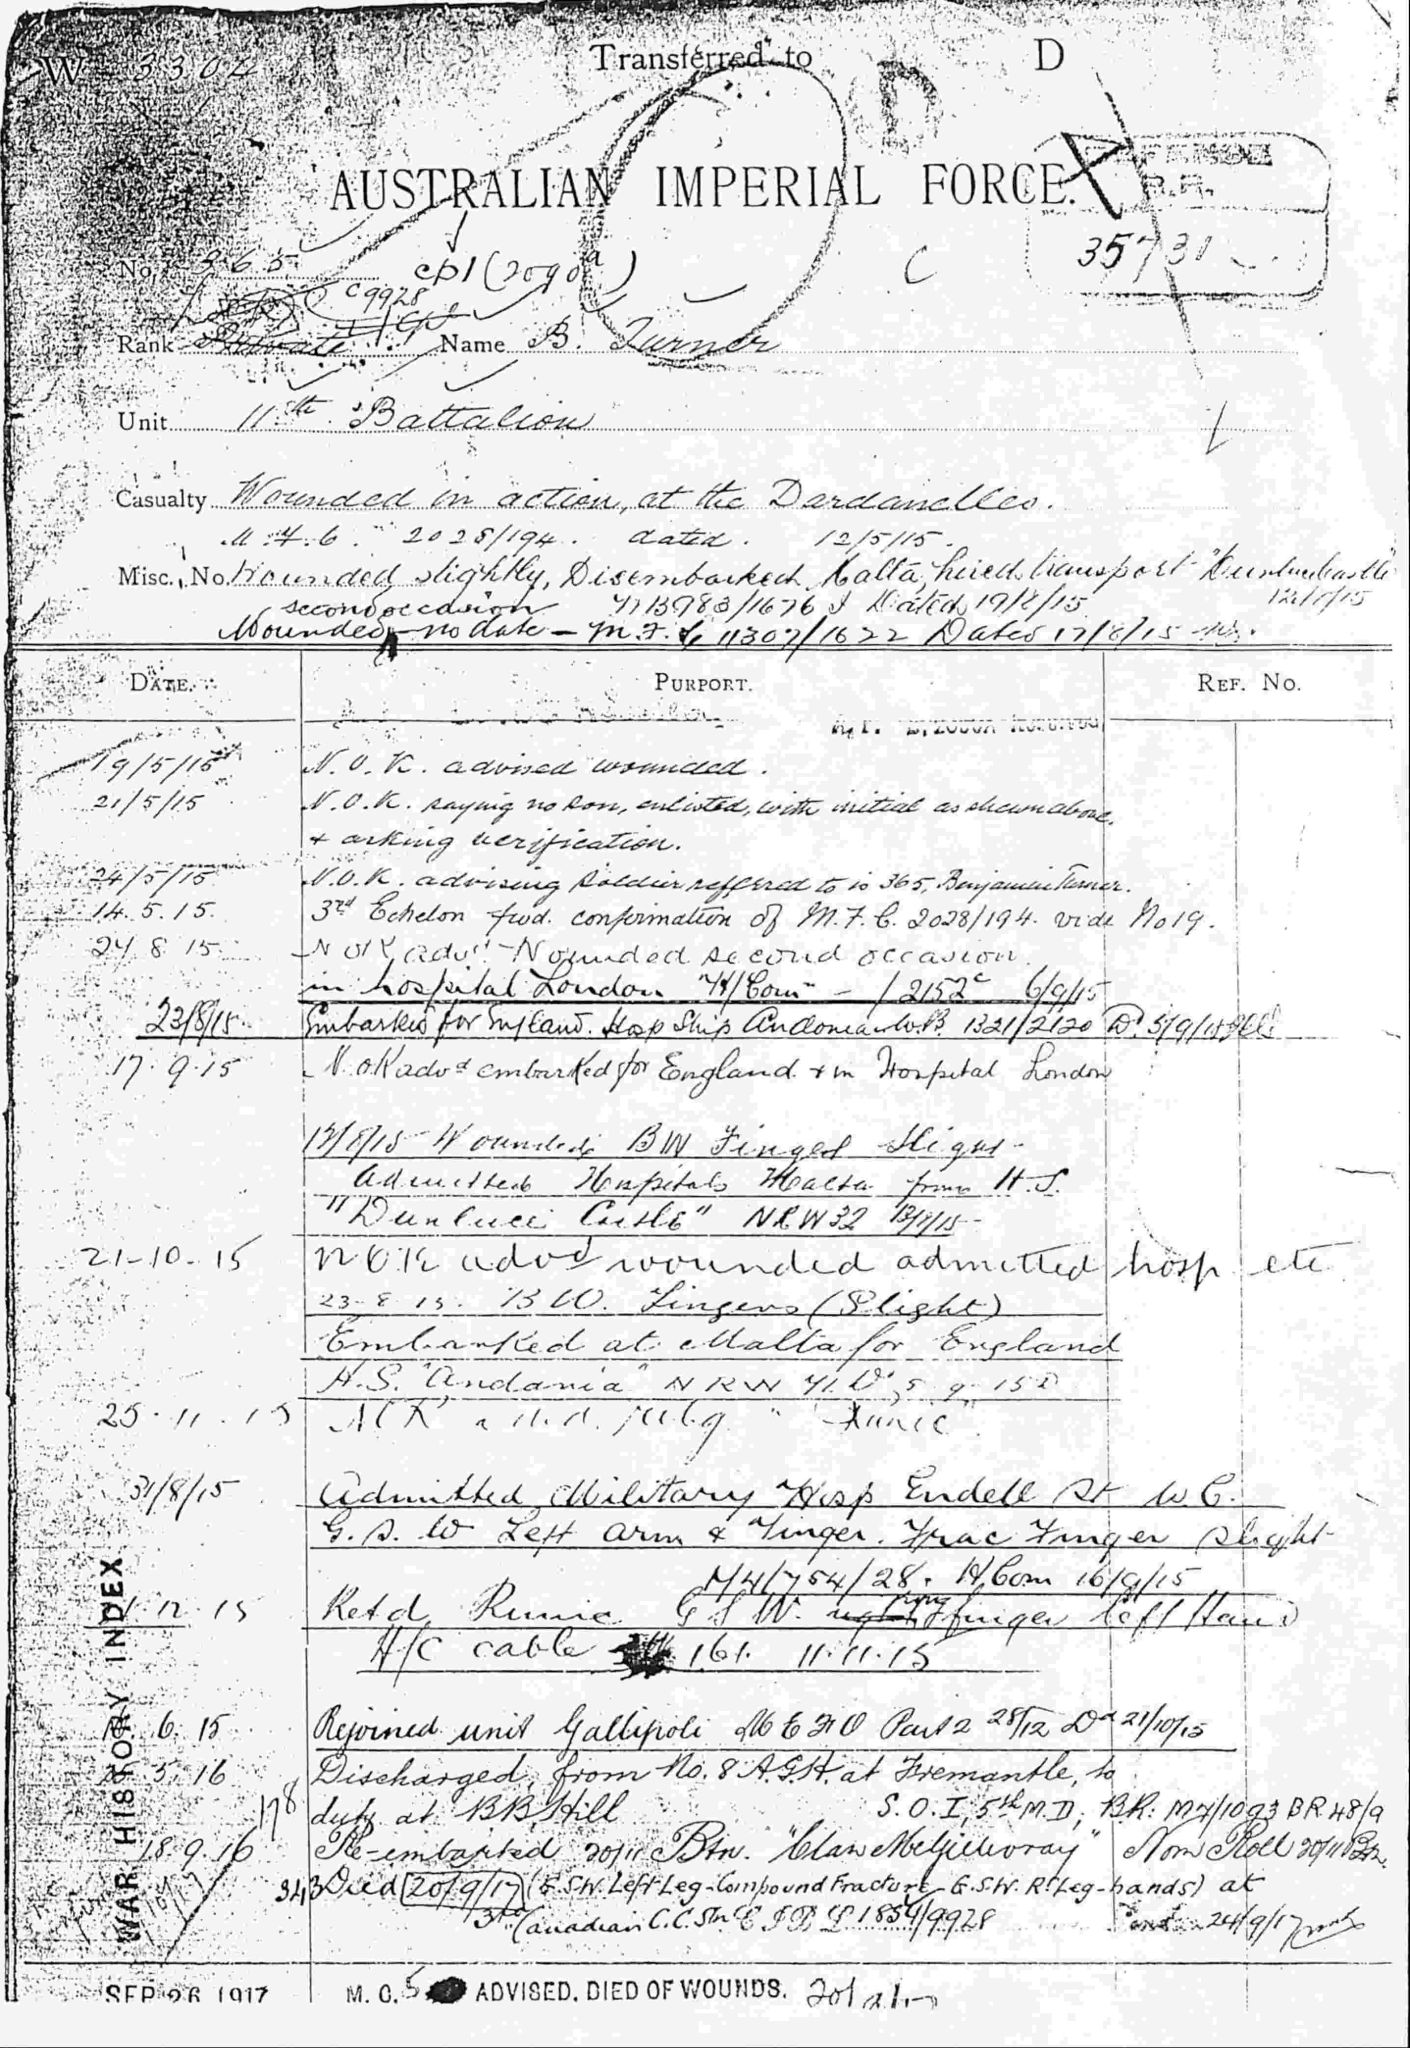 W 3304 Transferred to D
D
AUSTRALIAN IMPERIAL FORCE.
B.R.
35731
No. 365 cpl (2090a) C
C9928
Rank Private Name B. Turner
Unit 11th Battalion
Casualty Wounded in action, at the Dardanelles.
M.F.C. 2028/194. dated. 12/5/15.
Misc., No. Wounded slightly, Disembarked Malta, hired transport
second occasion 13983/1676 Dated 19/8/15
Wounded - no date - M.F.C. 11307/1622 Dated 17/8/15
DATE. PURPORT. REF. No.
19/5/15 N.O.K. advised wounded.
21/5/15 N.O.K. saying no son, enlisted, with initial as shewn above.
& asking verification.
24/5/15 N.O.K. advising soldier reffered to is 365, Benjamin Turner.
14.5.15. 3rd Echelon fwd. confirmation of M.F.C. 2028/194. vide No 19.
24 8 15 N O K advd Wounded second occasion.
in hospital London "H/Com" - 12152c 6/9/15
23/8/15 Embarked for England. Hosp Ship Andonia 1321/2120 D. 5/9/15
17.9.15 N.O.K advd embarked for England & in Hospital London
Wounded BW Finger Slight
Admitted Hospitals Malta from H.S.
"Dunluce Castle" NRW32
21-10.15 NOK advd wounded admitted hosp etc
23.8.15. B W. Fingers (Slight)
Embarked at Malta for England
H.S. "Andania" N R W 5 9 15
25.11.15
31/8/15 Admitted Military Hosp Endell St W C.
G. S. W Left arm & Finger. Frac Finger slight
M4/754/28. HCom 16/9/15
12.15 Retd Runic G S W ring finger left Hand
H/C cable 161. 11.11.15
6 15 Rejoined unit Gallipoli M E F O Part 2 28/12 Dd 21/10/15
5.16 Discharged, from No. 8 A.G.H. at Fremantle, to
duty at B.B. Hill S.O.I, 5th M.D, B.R: M7/1093 B R 48/9
178
18.9.16 Re-embarked 20/11 Btn. "Clan McGillivray" Nom Roll 20/11 Btn.
343 Died 20/9/17 (G.S.W. Left Leg-Compound Fracture - G.S.W. Rt Leg-hands) at
3rd Canadian C.C. Stn 1854/9928 24/9/17
WAR HISTORY INDEX
SEP 26 1917 M. C. 5 ADVISED. DIED OF WOUNDS.